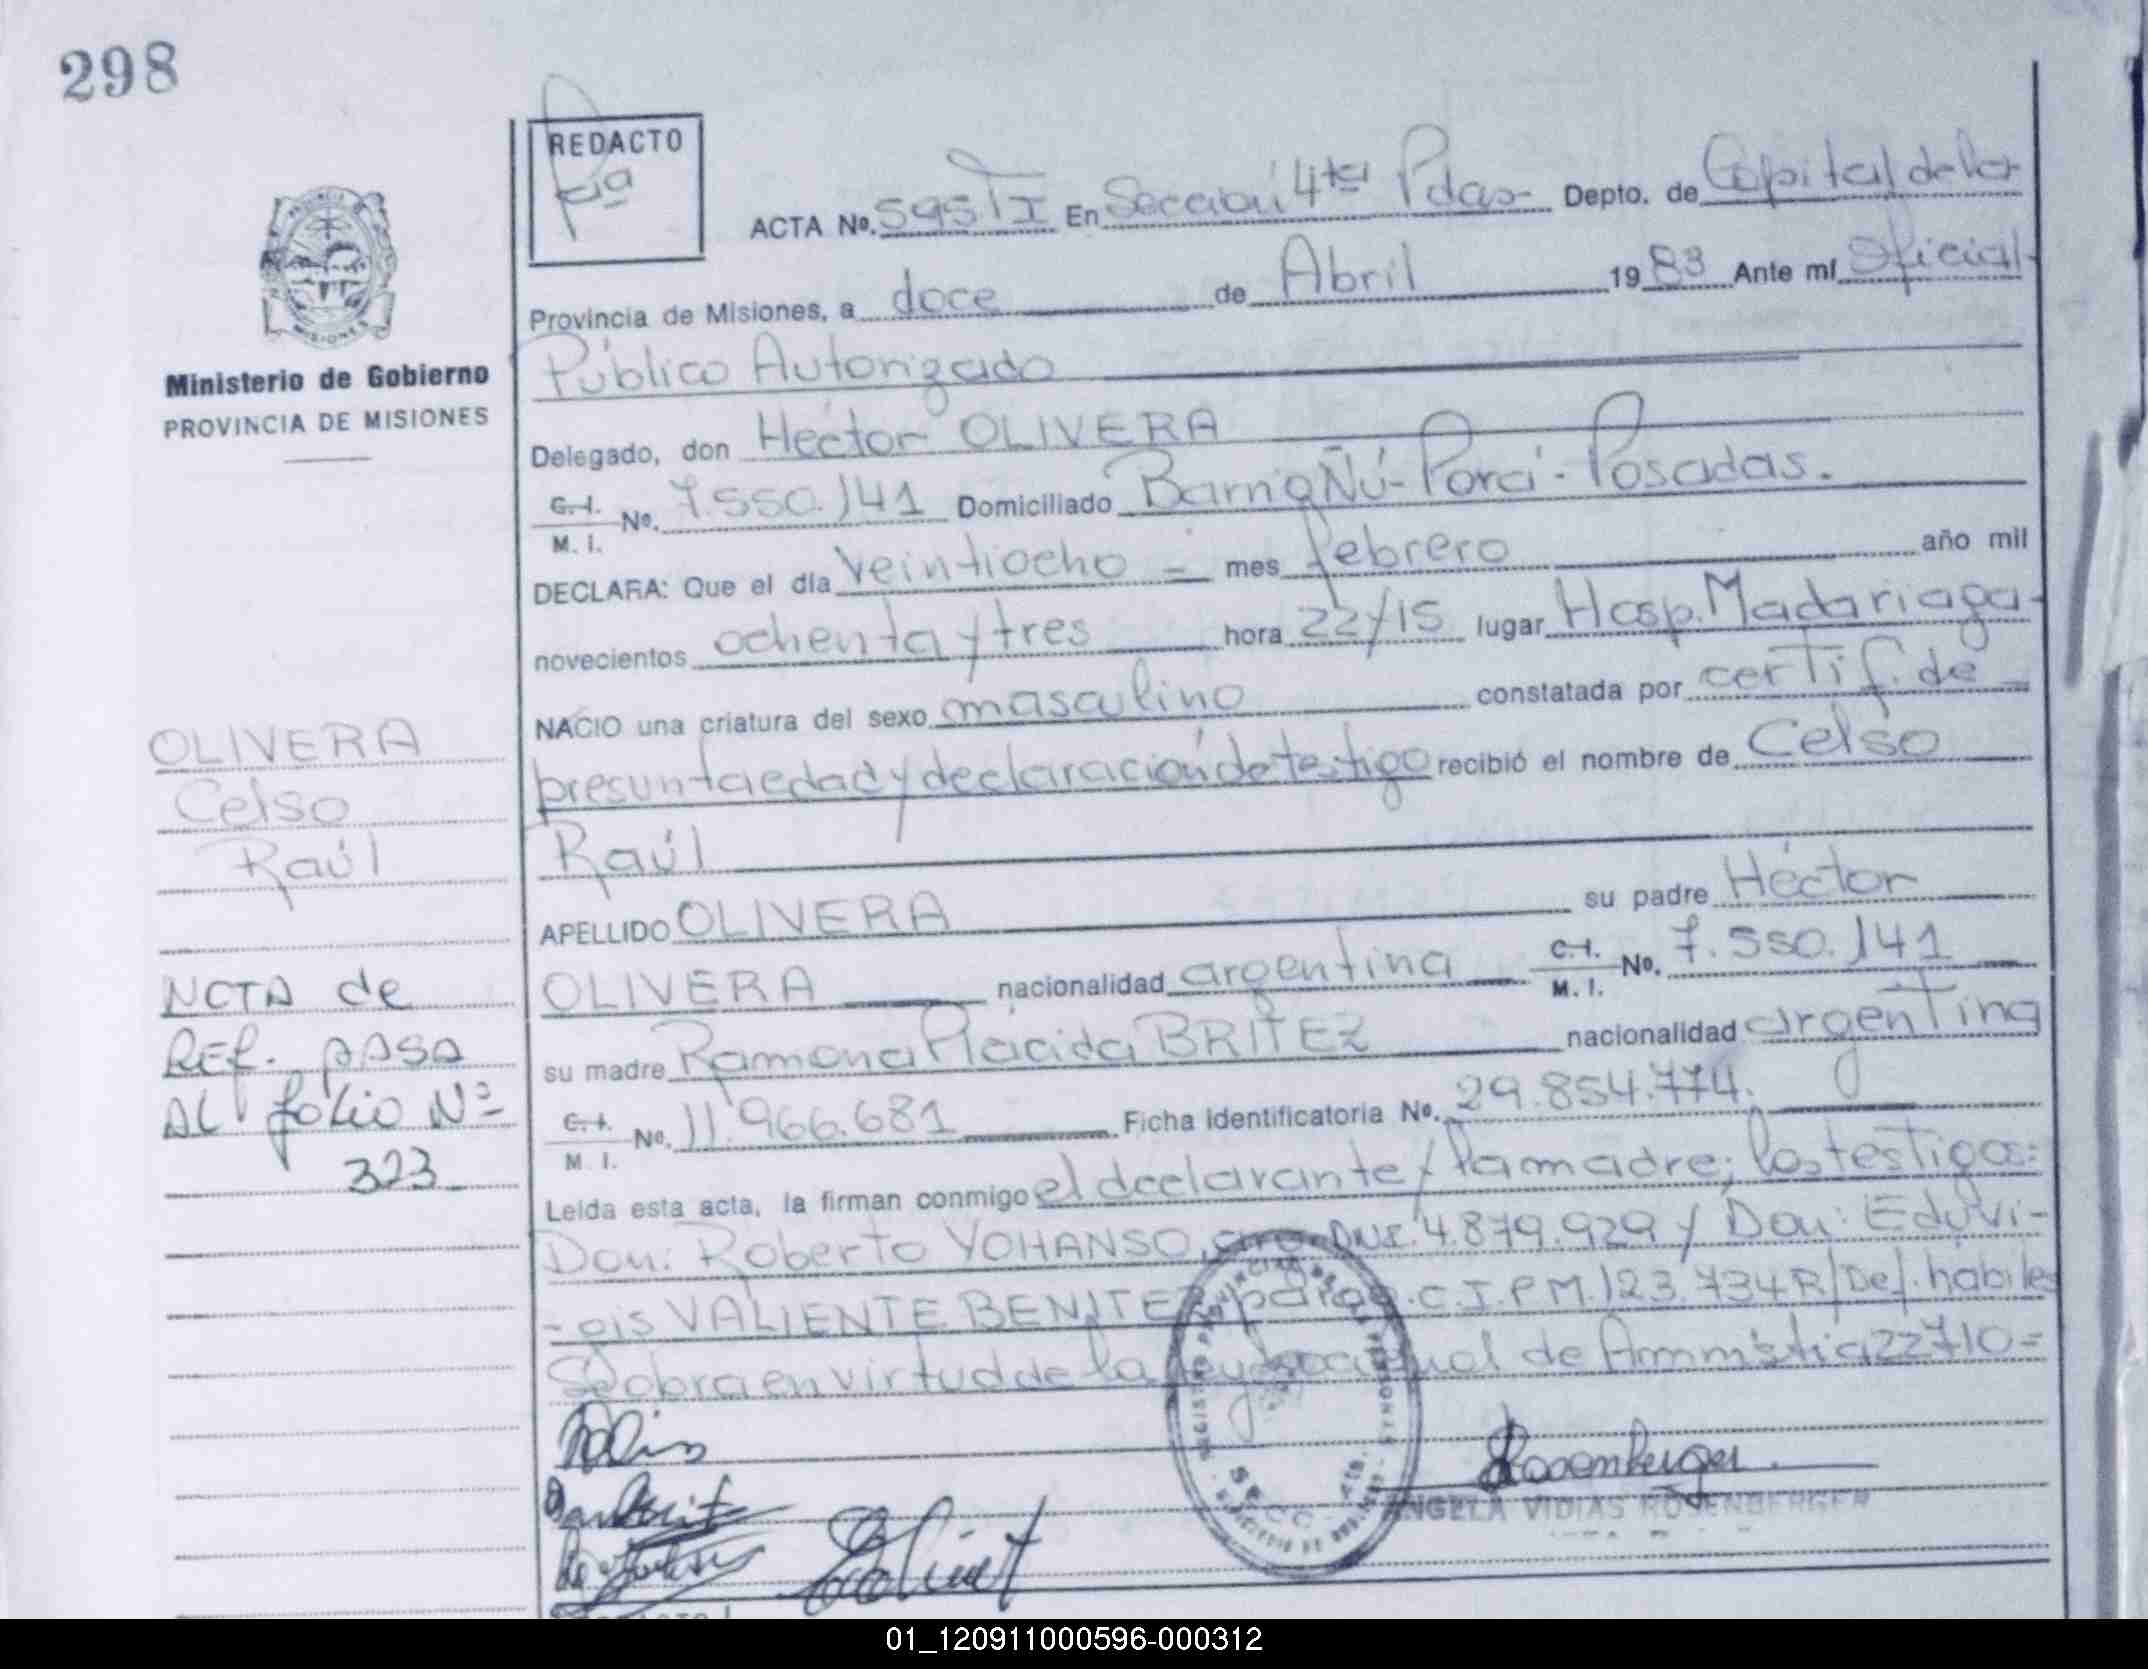 298
REDACTO
ACTA Nº. 595 T I En Sección 4ta Pdas- Depto. de Capital de la
Provincia de Misiones, a doce de Abril 1983 Ante mí Oficial
Ministerio de Gobierno
PROVINCIA DE MISIONES
Público Autorizado
Delegado, don Héctor OLIVERA
C.I. M. I. Nº. 7.550.141 Domiciliado Barrio Ñú-Porá-Posadas.
DECLARA: Que el día veintiocho - mes febrero año mil
novecientos ochenta y tres hora 22/15 lugar Hosp. Madariaga-
NACIO una criatura del sexo masculino constatada por certif. de
presunta edad y declaración de testigo recibió el nombre de Celso
Raúl
APELLIDO OLIVERA su padre Héctor
OLIVERA nacionalidad argentina C.I. M. I. Nº. 7.550.141
su madre Ramona Plácida BRITEZ nacionalidad argentina
C.I. M. I. Nº. 11.966.681 Ficha Identificatoria Nº. 29.854.774.
Leída esta acta, la firman conmigo el declarante y la madre; los testigos:
Don: Roberto YOHANSO, arg. DNI. 4.879.929 y Don: Eduvi-
-gis VALIENTE BENITEZ parag. C.I.P.M. 123.734R/De/. hábiles
Se obra en virtud de la ley de Ammistia 22710=
OLIVERA
Celso
Raúl
NOTA de
REF. PASA
AL folio Nº
323
Rosenberger
ANGELA VIDIAS ROSENBERGER
01_120911000596-000312